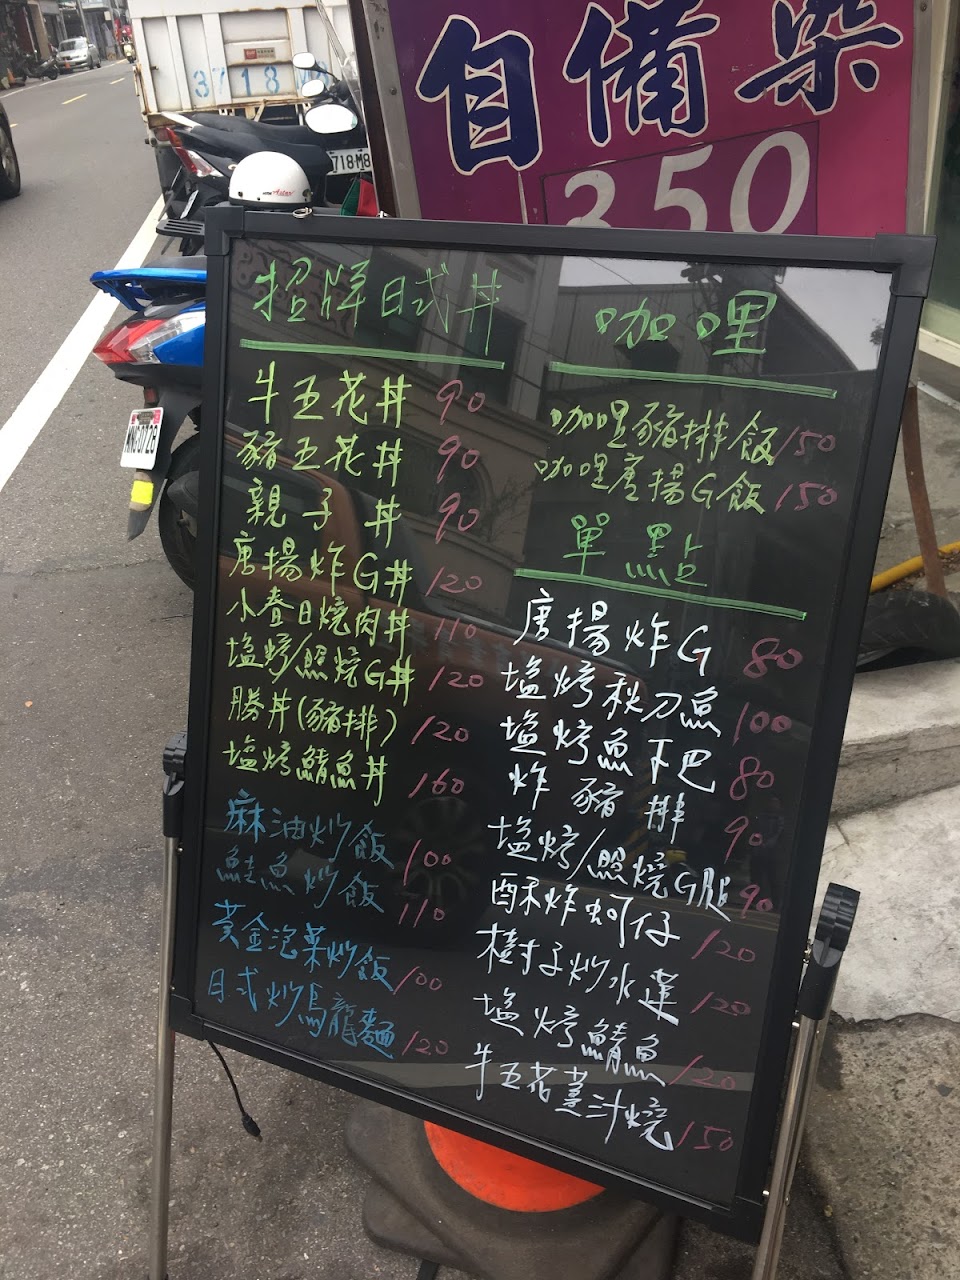 自備染
350
3718
718-M8
招牌日式丼
牛五花丼 90
豬五花丼 90
親子丼 90
唐揚炸G丼 120
小春日燒肉丼 110
塩烤/照燒G丼 120
勝丼(豬排) 120
塩烤鯖魚丼 160
麻油炒飯 100
鮭魚炒飯 110
黃金泡菜炒飯 100
日式炒烏龍麵 120
咖哩
咖哩豬排飯 150
咖哩唐揚G飯 150
單點
唐揚炸G 80
塩烤秋刀魚 100
塩烤魚下巴 80
炸豬排 90
塩烤/照燒G腿 90
酥炸蚵仔 120
樹子炒水蓮 120
塩烤鯖魚 120
牛五花薑汁燒 150